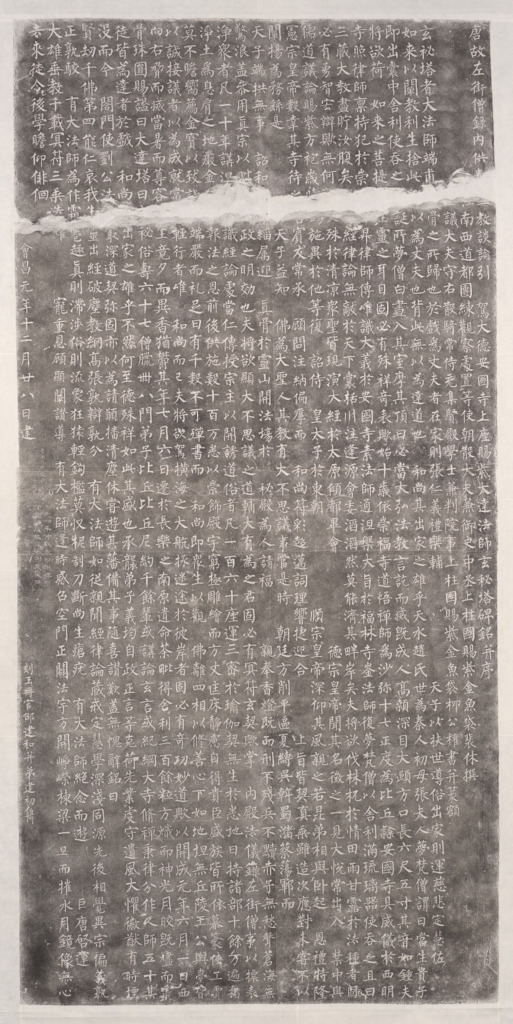 唐故左街僧錄內供教談論引駕大德安國寺上座賜紫大達法師玄秘塔碑銘并序
南西道都團練觀察處置等使朝散大夫兼御史中丞上柱國賜紫金魚袋裴休撰
議大夫守右散騎常侍充集賢殿學士兼判院事上柱國賜紫金魚袋柳公權書并篆額
玄秘塔者大法師端甫骨之所歸也於戲為丈夫者在家則張仁義禮樂輔天子以扶世導俗出家則運慈悲定慧佐
如來以闡教利生捨此以為丈夫也背此無以為達道也和尚其出家之雄乎天水趙氏世為秦人初母張夫人夢梵僧謂曰當生貴子
即出囊中舍利使吞之誕所夢僧白晝入其室摩其頂曰必當大弘法教言訖而滅既成人高顙深目大頤方口長六尺五寸其音如鍾夫
將欲荷如來之菩提靈之耳目固必有殊祥奇表歟始十歲依崇福寺道悟禪師為沙彌十七正度為比丘隸安國寺具威儀於西明
寺照律師稟持犯於崇昇律師傳唯識大義於安國寺素法師通涅槃大旨於福林寺崟法師復夢梵僧以舍利滿琉璃器使吞之且曰
三藏大教盡貯汝腹矣經律論無敵於天下囊括川注逢源會委滔滔然莫能濟其畔岸矣夫將欲伐株杌於情田雨甘露於法種者
固必有勇智宏辯歟無何殊於清涼眾聖皆現演大經於太原傾都畢會德宗皇帝聞其名徵之一見大悅常出入禁中與
儒道議論賜紫方袍歲時施異於他等復詔侍皇太子於東朝順宗皇帝深仰其風親之若昆弟相與臥起恩禮特隆
憲宗皇帝數幸其寺待賓友常承顧問注納偏厚而和尚符彩超邁詞理響捷迎合上旨皆契真乘雖造次應對未嘗不以
闡揚為務繇是天子益知佛為大聖人其教有大不思議事當是時朝廷方削平區夏縛吳斡蜀瀦蔡蕩鄆而
天子端拱無事詔和緇屬迎真骨於靈山開法場於秘殿為人請福親奉香燈既而刑不殘兵不黷赤子無愁聲蒼海無
驚浪蓋參用真宗以毗政之明效也夫將欲顯大不思議之道輔大有為之君固必有冥符玄契歟掌內殿法儀錄左街僧事以標表
淨眾者凡一十年講涅識經論處當仁傳授宗主以開誘道俗者凡一百六十座運三密於瑜伽契無生於悉地日持諸部十餘萬遍指
淨土為息肩之地嚴金報法之恩前後供施數十百萬悉以崇飾殿宇窮極雕繪而方丈匡床靜慮自得貴臣盛族皆所依慕豪俠工賈
莫不瞻嚮薦金寶以致誠端嚴而禮足日有千數不可殫書而和尚即眾生以觀佛離四相以修善心下如地坦無丘陵王公輿臺皆
以誠接議者以為成就常輕行者唯和尚而已夫將欲駕橫海之大航拯迷途於彼岸者固必有奇功妙道歟以開成元年六月一日西
向右脅而滅當暑而尊容生竟夕而異香猶鬱其年七月六日遷於長樂之南原遺命荼毗得舍利三百餘粒方熾而神光月皎既燼而靈
骨珠圓賜諡曰大達塔曰秘俗壽六十七僧臘卌八門弟子比丘比丘尼約千餘輩或講論玄言或紀綱大寺修禪秉律分作人師五十其
徒皆為達者於戲和尚出家之雄乎不然何至德殊祥如此其盛也承襲弟子義均自政正言等克荷先業虔守遺風大懼徽猷有時堙
沒而今閤門使劉公法最深道契彌固亦以為請願播清塵休嘗遊其藩備其事隨喜讚歎蓋無愧辭銘曰
賢劫千佛第四能仁哀我生靈出經破塵教網高張孰辯孰分有大法師如從親聞經律論藏戒定慧學深淺同源先後相覺異宗偏義孰
正孰駁有大法師為作霜雹趣真則滯涉俗則流象狂猿輕鉤檻莫收柅制刀斷尚生瘡疣有大法師絕念而遊巨唐啟運
大雄垂教千載冥符三乘迭寵重恩顧顯闡讚導有大法師逢時感召空門正闢法宇方開崢嶸棟梁一旦而摧水月鏡像無心
去來徒令後學瞻仰徘徊
會昌元年十二月廿八日建刻玉冊官邵建和并弟建初鐫